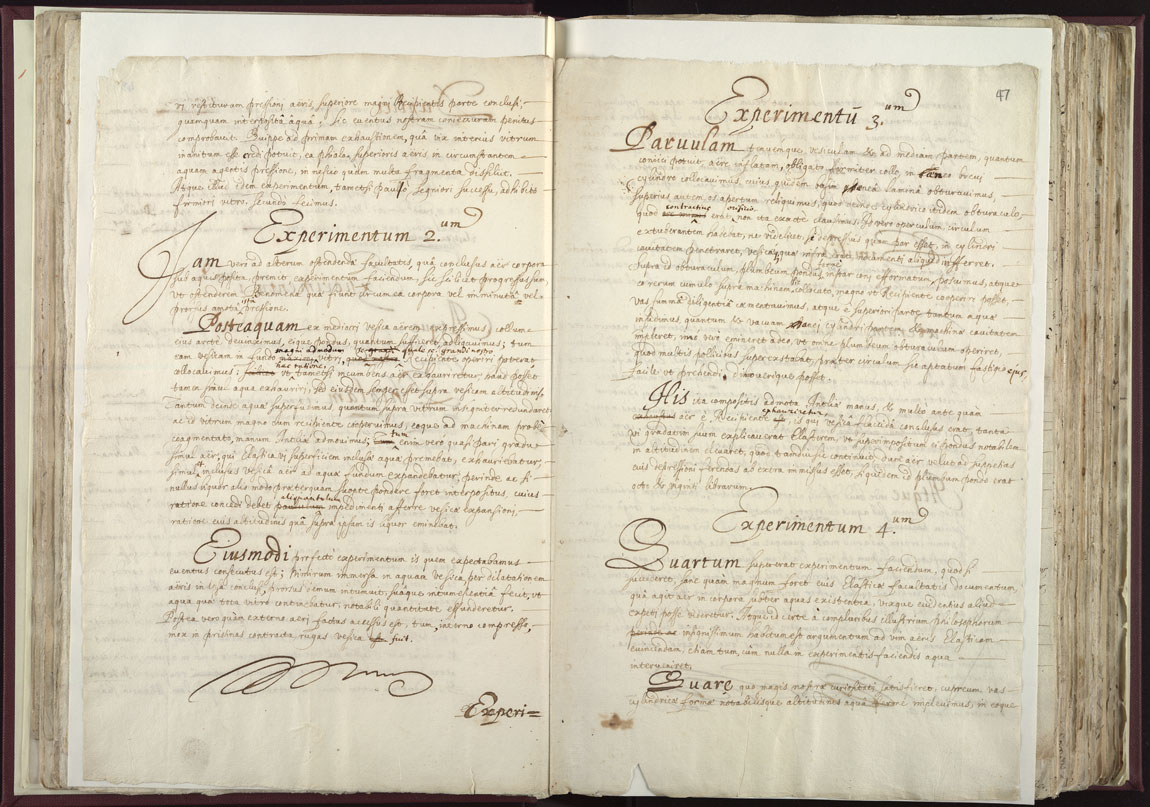 vi restituram pressioni aeris, superiore magni Recipientis parte conclusi,
quamquam interpositâ aquâ. Sic eventus nostram coniecturam penitus
comprobavit. Quippe ad primam exhaustionem, quâ vix interius vitrum
inanitum esse credi potuit, ea phiala superioris aeris, in circumstantem
aquam agentis pressione, in nescio quàm multa fragmenta dissiliit.
Atque illud idem experimentum, tametsi paulo segniori successu, adhibito
firmiori vitro, secundò fecimus.
Experimentum 2.um
Iam verò ad alterum ostendendae facultatis, quâ conclusus aër corpora
sub aquis posita premit, experimentum faciendum, sic scilicet progressi sumus,
ut ostenderem Phenomena quae fiunt circum ea corpora vel imminutâ vel
prorsus amotâ istâ pressione.
Posteaquam ex mediocri vesica aërem expressimus, collum
eius arctè devinximus, eique pondus, quantum sufficeret, alligavimus; tum
eam vesicam in fundo magni admodum vitri, quale sc. grandi nostro Recipiente operiri poterat
collocavimus; hac ratione, ut tametsi incumbens aër exhauriretur, haud posset
tamen simul aqua exhauriri, sed eiusdem semper esset supra vesicam altitudinis.
Tantum deinde aquae superfudimus quantum supra vitrum insigniter redundaret
ac id vitrum magno dum recipiente cooperuimus, eoque ad machinam probè
coagmentato, manum Antliae admovimus; tum enim verò quasi pari gradu
simul aër, qui Elasticâ vi superficiem inclusae aquae premebat, exhauriebatur,
simul & inclusus vesicâ aër ad aquae fundum expandebatur; perinde ac si
nullus liquor alio modo praeterquam suopte pondere foret interpositus, cuius
ratione concedi debet aliquantulum impedimenti afferre vesicae expansioni,
ratione eius altitudinis quâ supra ipsam is liquor eminebat.
Eiusmodi profectò experimentum is quem expectabamus
eventus consecutus est; Nimirum immersa in aquam vesica, per dilatationem
aëris in ipsa conclusi, prorsus demum intumuit, suâque intumescentiâ fecit, ut
aqua quae tota vitro continebatur, notabili quantitate effunderetur.
Postea verò quàm externo aëri factus accessus est, tum, interno compresso,
mox in pristinas contracta rugas vesica fuit.
Experi=
47
Experimentū 3.um
Parvulam tenuemque vesiculam & ad mediam partem, quantum
conijci potuit, aëre inflatam, obligato firmiter collo, in aeneo brevi
cylindro collocavimus, cuius quidem basim aeneâ laminâ obturavimus,
superius autem os apertum reliquimus, quod neinde cylindrico itidem obturaculo,
quod contractius erat orificio, non ita exactè clausimus. Is verò operculum, circulum
extuberantem habebat, ne videlicet, si depressius quàm par esset, in cylindri
cavitatem penetraret, vesicae quae infra erat detrimenti aliquid inferret.
Supra id obturaculum, plumbeum pondus, instar oris efformatum, posuimus, atque
eo rerum cumulo supra machinam sic collocato, magno ut Recipiente cooperiri posset,
vas summâ diligentiâ caementavimus, atque è superiori parte tantum aquae
infudimus, quantum & vacuam aenei cylindri machinae cavitatem
impleret, mox verò emineret adeò, ut omne plumbeum obturaculum operiret,
quod multis pollicibus superextabat, praeter circulum sic aptatum fastigio eius,
facilè ut prehendi, dimoverique posset.
His ita compositis admota Antliae manus, & multò ante quam
aër è Recipiente exhauriretur, is qui vesicâ flaccidâ conclusus erat, tantâ
vi gradatim suum explicuerat Elasterem, ut superimpositum ei pondus notabilem
in altitudinem elevaret, quod tamdiu sic continuit, dum aër velut ad suppetias
eius depressioni ferendas ab extra immissus esset. Siquidem id plumbum pondo erat
octo & viginti librarum.
Experimentum 4.um
Quartum supererat experimentum faciendum, quo si
succederet, sanè quàm magnum foret eius Elasticae facultatis documentum,
quâ agit aër in corpora subter aquas existentia, vixque evidentius aliud
expeti posse videretur. Atqui id certè à compluribus illustrium philosophorum
ingeniosissimum habitum est argumentum ad vim aëris Elasticam
evincendam, etiam tum, cùm nulla in experimentis faciendis aqua
interveniret.
Quare quo magis nostrae curiositati satisfieret, cupreum vas
cylindricae formae notabilisque altitudinis aquâ ferme implevimus, in eoque